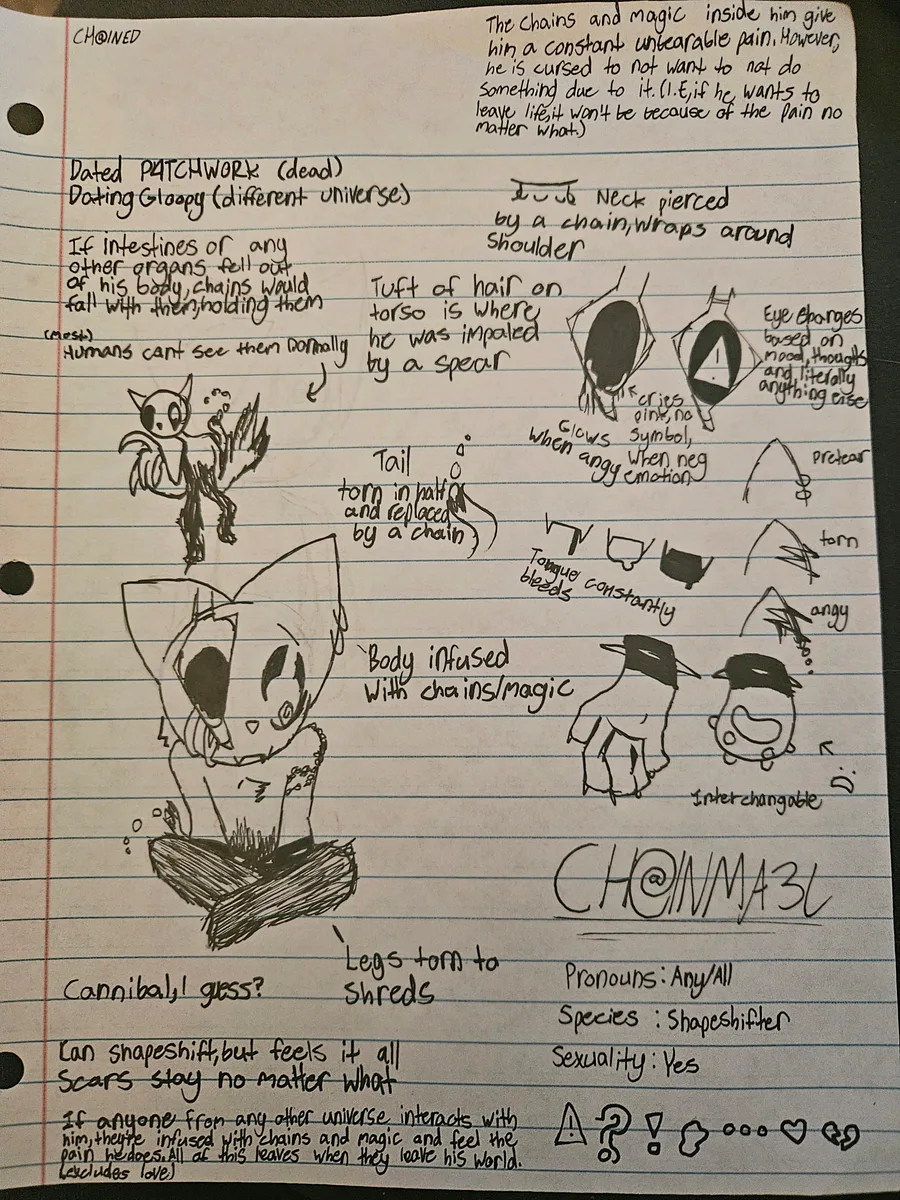 CH@INED
The chains and magic inside him give
him a constant unbearable pain. However,
he is cursed to not want to not do
something due to it. (I.E, if he wants to
leave life, it won't be because of the pain no
matter what.)
Dated P4TCHW0RK (dead)
Dating Gloopy (different universe)
Neck pierced
by a chain, wraps around
shoulder
If intestines or any
other organs fell out
of his body, chains would
fall with them, holding them
(most)
Humans cant see them normally
Tuft of hair on
torso is where
he was impaled
by a spear
Eye changes
based on
mood, thoughts
and literally
anything else
cries
pink, no
symbol,
when neg
emotion
Glows
when angy
Tail
torn in half
and replaced
by a chain
pretear
torn
angy
Tongue constantly
bleeds
Body infused
with chains/magic
Interchangable
CH@INMA3L
Legs torn to
shreds
Cannibal, I guess?
Pronouns: Any/All
Species : Shapeshifter
Sexuality: Yes
Can shapeshift, but feels it all
Scars stay no matter what
If anyone from any other universe interacts with
him, they're infused with chains and magic and feel the
pain he does. All of this leaves when they leave his world.
(excludes love)